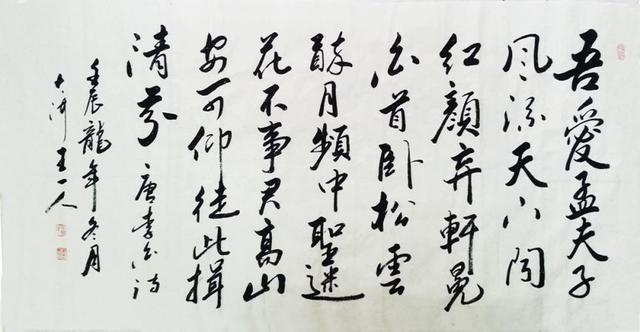 吾愛孟夫子
风流天下闻
红顏弃軒冕
白首卧松雲
醉月頻中聖迷
花不事君高山
安可仰徒此揖
清芬 唐李白诗
壬辰龍年冬月
王一人